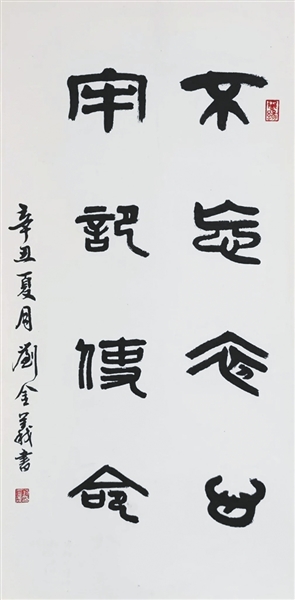 不忘初心
牢記使命
辛丑夏月劉金義書